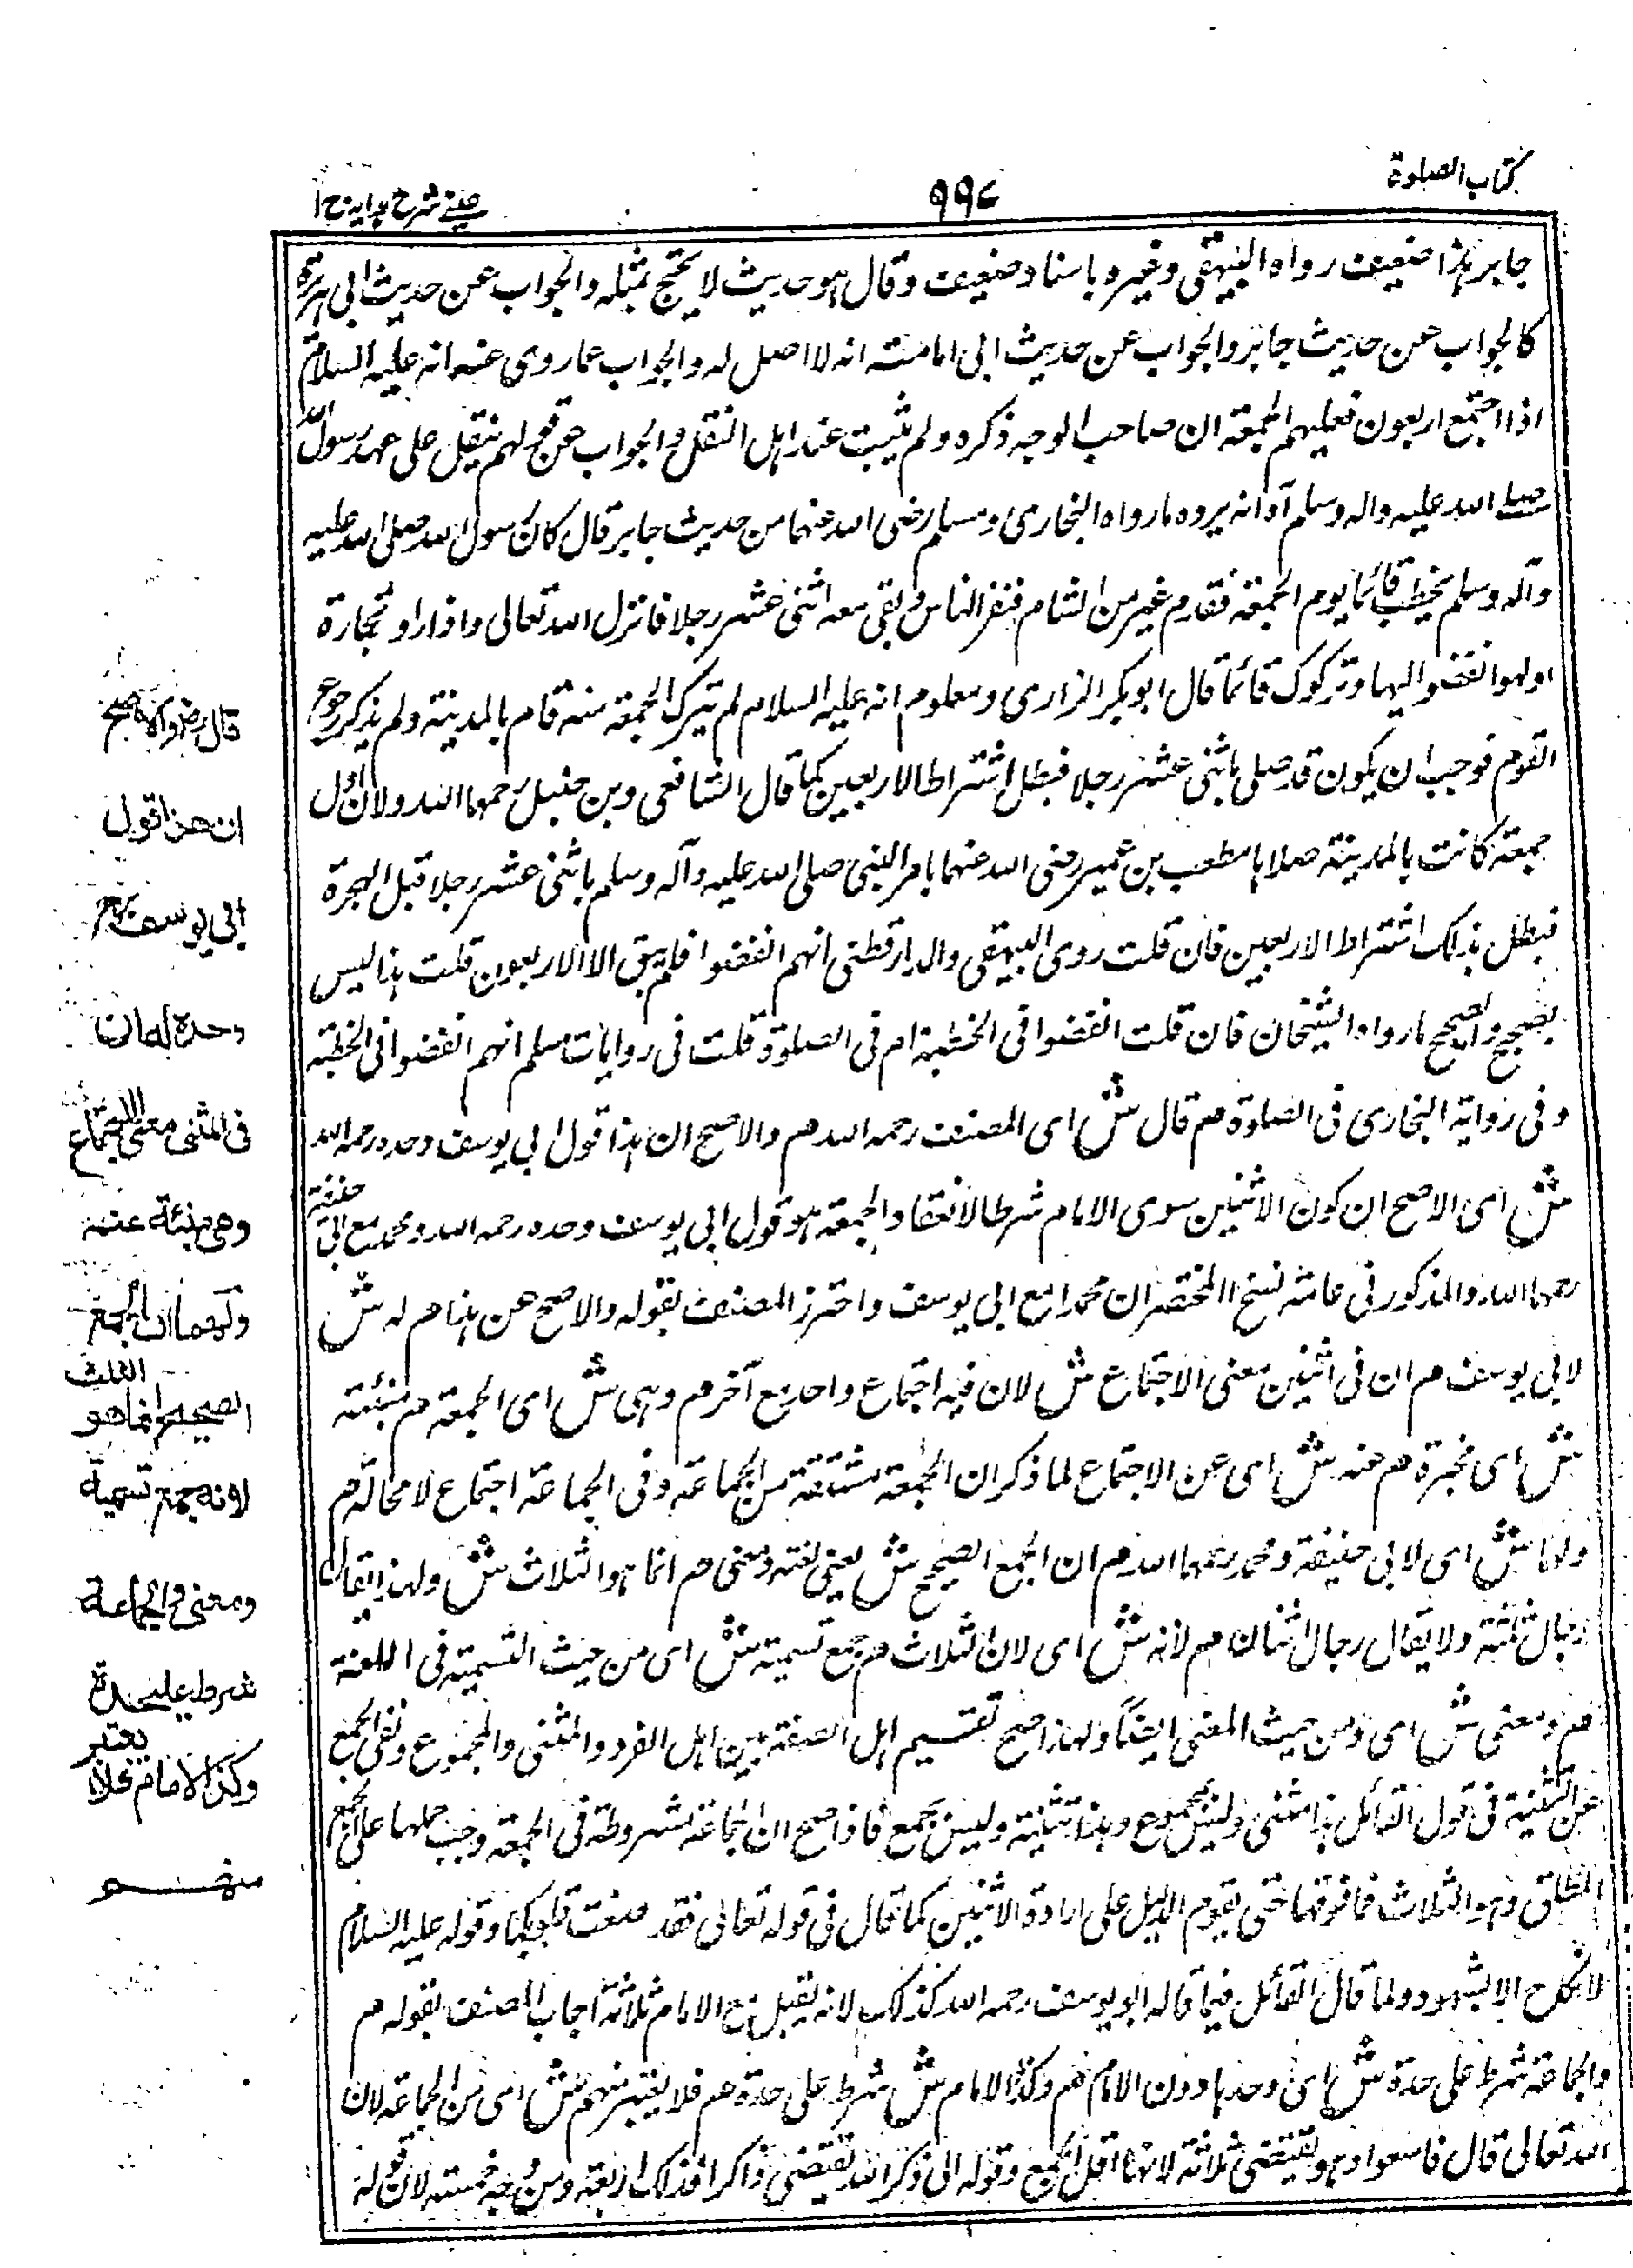 كتاب الصلوة
٩٩٤
عينى شرح هدايہ ج ا
جابر هذا ضعيف رواه البيهقى وغيره باسناد ضعيف وقال هو حديث لا يحتج بمثله والجواب عن حديث ابى هريرة
كالجواب عن حديث جابر والجواب عن حديث ابى امامة انه لا اصل له والجواب عما روى عنه انه عليه السلام
اذا اجتمع اربعون فعليهم الجمعة ان صاحب الوجيه ذكره ولم يثبت عند اهل النقل والجواب عن قولهم لم ينقل على عهد رسول الله
صلى الله عليه واله وسلم آه انه يرده ما رواه البخارى ومسلم رضى الله عنهما من حديث جابر قال كان رسول الله صلى الله عليه
وآله وسلم يخطب قائما يوم الجمعة فقدم عير من الشام فنفر الناس وبقى معه اثنى عشر رجلا فانزل الله تعالى واذا راو تجارة
اولهوا انفضوا اليها وتركوك قائما قال ابو بكر الرازى ومعلوم انه عليه السلام لم يترك الجمعة منذ قام بالمدينة ولم يذكر رجوع
القوم فوجب ان يكون قد صلى باثنى عشر رجلا فبطل اشتراط الاربعين كما قال الشافعى وبن حنبل رحمهما الله ولان اول
جمعة كانت بالمدينة صلاها مصعب بن عمير رضى الله عنهما بامر النبى صلى الله عليه وآله وسلم باثنى عشر رجلا قبل الهجرة
فبطل بذلك اشتراط الاربعين فان قلت روى البيهقى والدارقطنى انهم انفضوا فلم يبق الا الاربعون قلت هذا ليس
بصحيح والصحيح ما رواه الشيخان فان قلت انفضوا فى الخطبة ام فى الصلوة قلت فى روايات مسلم انهم انفضوا فى الخطبة
وفى رواية البخارى فى الصلوة م قال ش اى المصنف رحمه الله م والاصح ان هذا قول ابى يوسف وحده رحمه الله
ش اى الاصح ان كون الاثنين سوى الامام شرطا لانعقاد الجمعة هو قول ابى يوسف وحده رحمه الله ومحمد مع ابى حنيفة
رحمهما الله والمذكور فى عامة نسخ المختصر ان محمدا مع ابى يوسف واحترز المصنف بقوله والاصح عن هذا م له ش
لابى يوسف م ان فى اثنين معنى الاجتماع ش لان فيه اجتماع واحد مع آخر م وهى ش اى الجمعة م منبئة
ش اى مخبرة م عنه ش اى عن الاجتماع لما ذكر ان الجمعة مشتقة من الجماعة وفى الجماعة اجتماع لا محالة م
ولهما ش اى لابى حنيفة ومحمد رحمهما الله م ان الجمع الصحيح ش يعنى لغة ومعنى م انما هو الثلاث ش ولهذا يقال
رجال ثلثة ولا يقال رجال اثنان م لانه ش اى لان الثلاث م جمع تسمية ش اى من حيث التسمية فى اللغة
م ومعنى ش اى ومن حيث المعنى ايضاً ولهذا صح تقسيم اهل الصنعة بين اهل الفرد والمثنى والمجموع ونفى الجمع
عن التثنية فى قول القائل هذا مثنى وليس بمجموع وهذا تثنية وليس بجمع فاذا صح ان الجماعة مشروطة فى الجمعة وجب حملها على الجمع
المطلق وهو الثلاث فما فوقها حتى يقوم الدليل على ارادة الاثنين كما قال فى قوله تعالى فقد صغت قلوبكما وقوله عليه السلام
لا نكاح الا بشهود ولما قال القائل فيما قاله ابو يوسف رحمه الله كذلك لانه يقبل مع الامام ثلاثة اجاب المصنف بقوله م
والجماعة شرط على حدة ش اى وحدها دون الامام م وكذا الامام ش شرط على حدة م فلا يعتبر منهم ش اى من الجماعة لان
الله تعالى قال فاسعوا وهو يقتضى ثلاثة لانها اقل الجمع وقوله الى ذكر الله يقتضى ذاكرا فذلك اربعة ومن وجه خمسة لان قوله
قال رض والاصح
ان هذا قول
ابى يوسف رح
وحده له ان
فى المثنى معنى الاجتماع
وهى منبئة عنه
ولهما ان الجمع
الصحيح انما هو الثلث
لانه جمع تسمية
ومعنى والجماعة
شرط على حدة
وكذا الامام فلا يعتبر
منهم